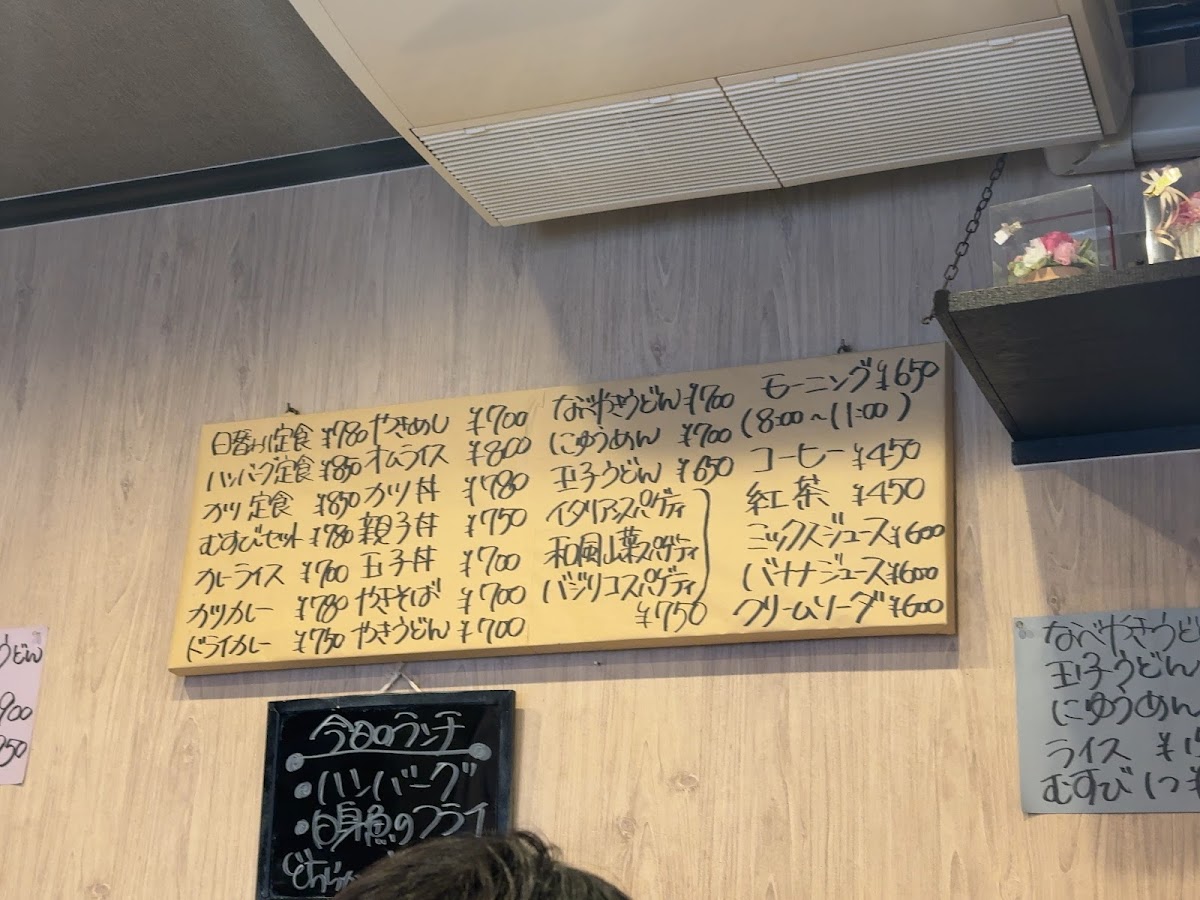 日替り定食 ¥780
ハンバーグ定食 ¥850
カツ定食 ¥850
むすびセット ¥780
カレーライス ¥700
カツカレー ¥780
ドライカレー ¥750
やきめし ¥700
オムライス ¥800
カツ丼 ¥780
親子丼 ¥750
玉子丼 ¥700
やきそば ¥700
やきうどん ¥700
なべやきうどん ¥700
にゅうめん ¥700
玉子うどん ¥650
イタリアンスパゲティ
和風山菜スパゲティ
バジリコスパゲティ
¥750
モーニング ¥650
(8:00～11:00)
コーヒー ¥450
紅茶 ¥450
ミックスジュース ¥600
バナナジュース ¥600
クリームソーダ ¥600
うどん
900
950
今日のランチ
・ハンバーグ
・白身魚のフライ
どちらか
なべやきうどん
玉子うどん
にゅうめん
ライス ¥1
むすび 1つ ¥